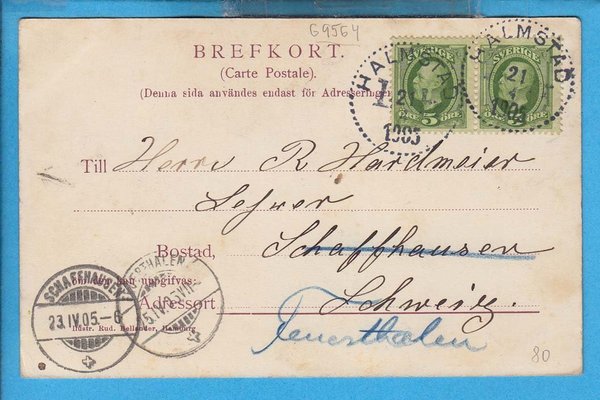 G9564
BREFKORT.
(Carte Postale).
(Denna sida användes endast för Adresseringen
SVERIGE
5 ÖRE 5 ÖRE
HALMSTAD
1905
SVERIGE
HALMSTAD
21
4
1905
Till Herrn R Hardmeier
Lehrer
Bostad, Schaffhausen
om den kan uppgifvas:
Adressort Schweiz.
Feuerthalen
SCHAFFHAUSEN
23.IV.05.-6
Illustr. Rud. Bellander, Hamburg
80